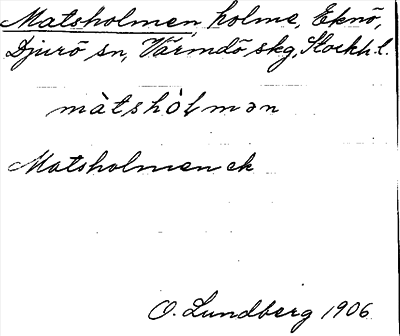 Matsholmen, holme, Eknö,
Djurö sn, Värmdö skg, Stockh.l.
màtshòlmən
Matsholmen ek
O. Lundberg 1906